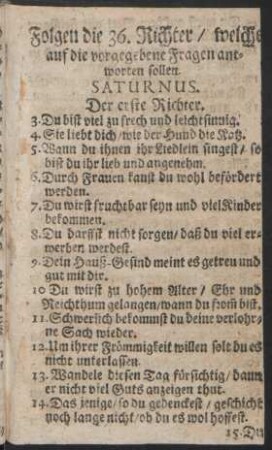 Folgen die 36. Richter / welche
auf die vorgegebene Fragen ant-
worten sollen.
SATURNUS.
Der erste Richter.
3. Du bist viel zu frech und leichtsinnig.
4. Sie liebt dich / wie der Hund die Katz.
5. Wann du ihnen ihr Liedlein singest / so
bist du ihr lieb und angenehm.
6. Durch Frauen kanst du wohl befördert
werden.
7. Du wirst fruchtbar seyn und viel Kinder
bekommen.
8. Du darffst nicht sorgen / daß du viel er-
werben werdest.
9. Dein Hauß-Gesind meint es getreu und
gut mit dir.
10 Du wirst zu hohem Alter / Ehr und
Reichthum gelangen / wann du from̃ bist.
11. Schwerlich bekommst du deine verlohr-
ne Sach wieder.
12. Um ihrer Frömmigkeit willen solt du es
nicht unterlassen.
13. Wandele diesen Tag fürsichtig / dann
er nicht viel Guts anzeigen thut.
14. Das jenige / so du gedenckest / geschicht
noch lange nicht / ob du es wol hoffest.
15. Du